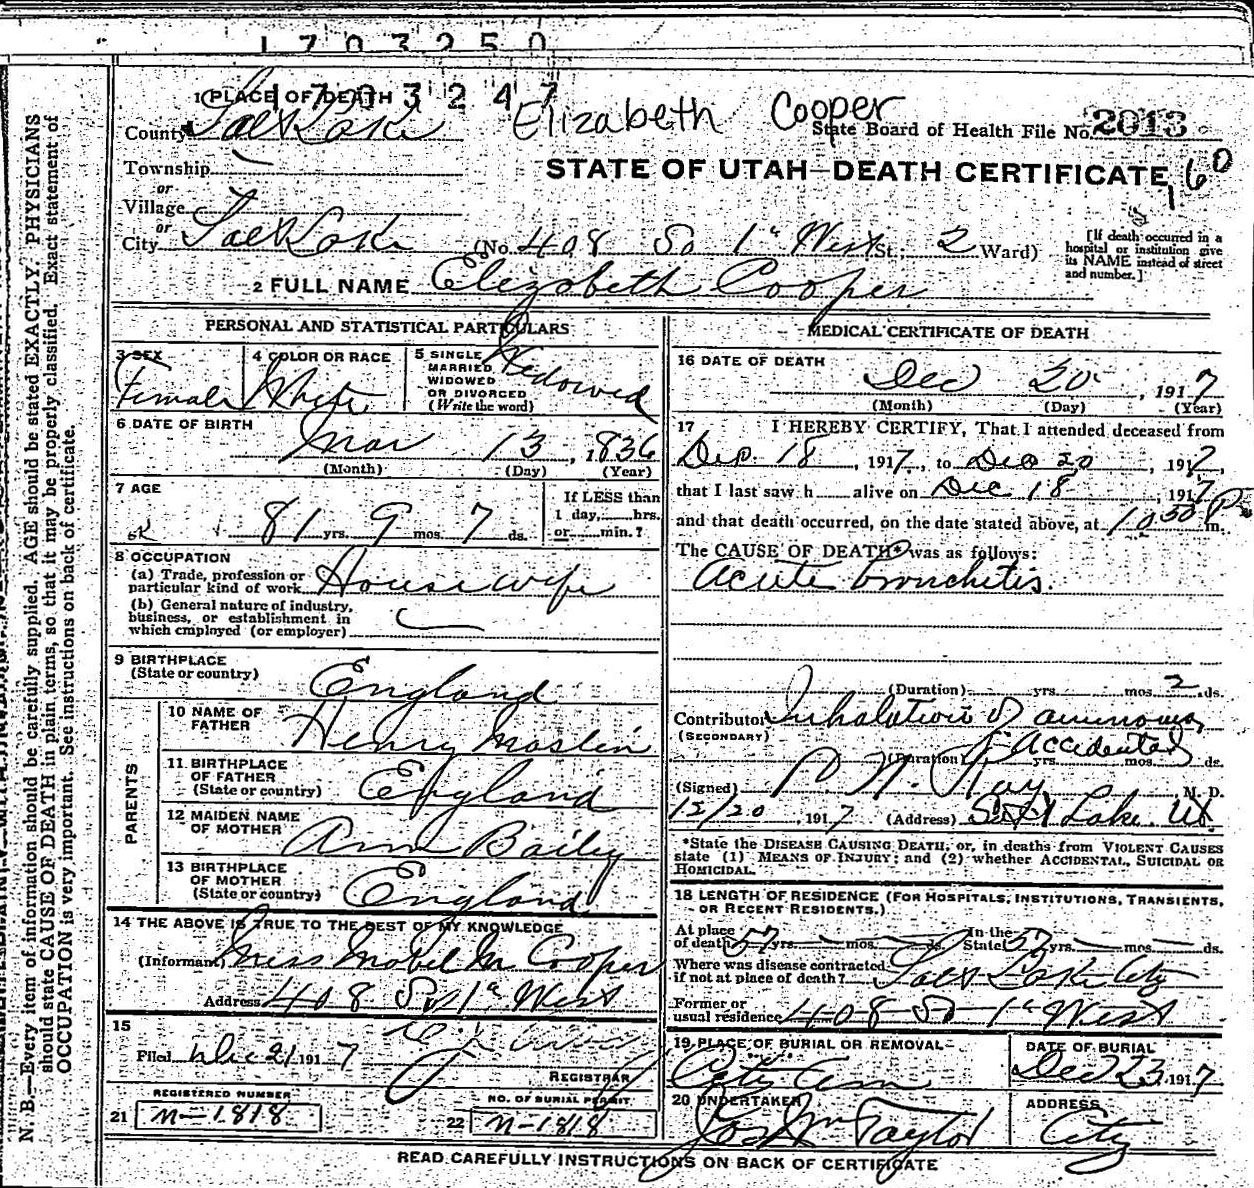 1703250
1703247
1 PLACE OF DEATH
Elizabeth Cooper
County Salt Lake
State Board of Health File No. 2013
Township
STATE OF UTAH—DEATH CERTIFICATE
160
or
Village
or
City Salt Lake (No. 408 So 1st West St.; 2 Ward)
[If death occurred in a hospital or institution give its NAME instead of street and number.]
2 FULL NAME Elizabeth Cooper
PERSONAL AND STATISTICAL PARTICULARS
3 SEX Female
4 COLOR OR RACE White
5 SINGLE MARRIED WIDOWED OR DIVORCED (Write the word) Widowed
6 DATE OF BIRTH Mar 13, 1836
(Month) (Day) (Year)
7 AGE 81 yrs. 9 mos. 7 ds.
If LESS than 1 day, hrs. or min.?
8 OCCUPATION
(a) Trade, profession or particular kind of work Housewife
(b) General nature of industry, business, or establishment in which employed (or employer)
9 BIRTHPLACE (State or country) England
PARENTS
10 NAME OF FATHER Henry Maslin
11 BIRTHPLACE OF FATHER (State or country) England
12 MAIDEN NAME OF MOTHER Ann Baily
13 BIRTHPLACE OF MOTHER (State or country) England
14 THE ABOVE IS TRUE TO THE BEST OF MY KNOWLEDGE
(Informant) Miss Mabel M Cooper
Address 408 So 1st West
15
Filed Dec 21 1917
REGISTRAR
REGISTERED NUMBER
21 N-1818
NO. OF BURIAL PERMIT
22 N-1818
MEDICAL CERTIFICATE OF DEATH
16 DATE OF DEATH Dec 20, 1917
(Month) (Day) (Year)
17 I HEREBY CERTIFY, That I attended deceased from
Dec. 18, 1917, to Dec 20, 1917,
that I last saw h alive on Dec 18, 1917
and that death occurred, on the date stated above, at 10 30 P m.
The CAUSE OF DEATH* was as follows:
Acute bronchitis.
(Duration) yrs. mos. 2 ds.
Contributory Inhalation of ammonia,
(SECONDARY) Accidental
(Duration) yrs. mos. ds.
(Signed) M. D.
12/20 1917 (Address) Salt Lake. Ut.
*State the DISEASE CAUSING DEATH, or, in deaths from VIOLENT CAUSES state (1) MEANS OF INJURY; and (2) whether ACCIDENTAL, SUICIDAL OR HOMICIDAL.
18 LENGTH OF RESIDENCE (FOR HOSPITALS, INSTITUTIONS, TRANSIENTS, OR RECENT RESIDENTS.)
At place of death 57 yrs. mos. ds. In the State 57 yrs. mos. ds.
Where was disease contracted if not at place of death? Salt Lake City
Former or usual residence 408 So 1st West
19 PLACE OF BURIAL OR REMOVAL City Cem
DATE OF BURIAL Dec 23, 1917
20 UNDERTAKER Jos Wm Taylor
ADDRESS City
READ CAREFULLY INSTRUCTIONS ON BACK OF CERTIFICATE
N. B.—Every item of information should be carefully supplied. AGE should be stated EXACTLY. PHYSICIANS
should state CAUSE OF DEATH in plain terms, so that it may be properly classified. Exact statement of
OCCUPATION is very important. See instructions on back of certificate.